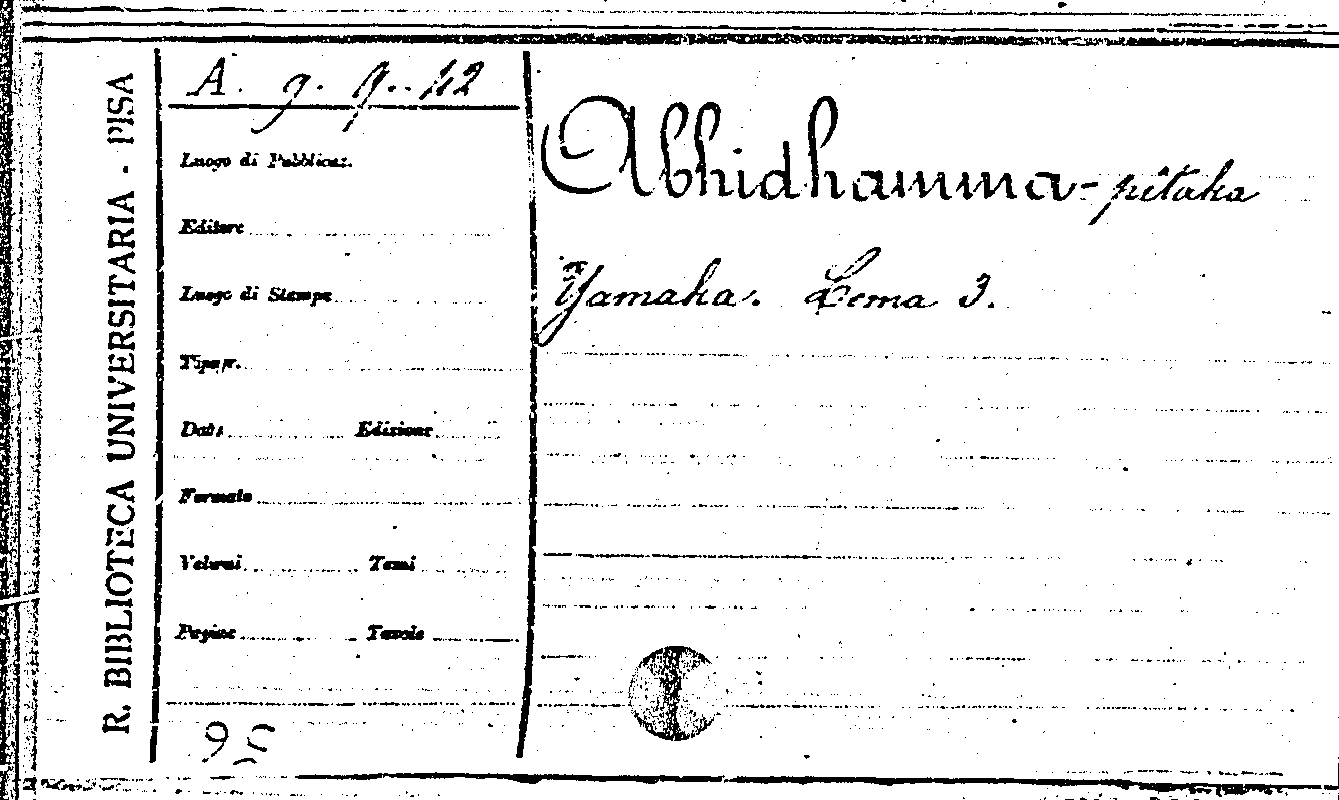 R. BIBLIOTECA UNIVERSITARIA - PISA
A. g. 9. 42
Luogo di Pubblicaz.
Editore
Luogo di Stampa
Tipogr.
Data Edizione
Formato
Volumi Tomi
Pagine Tavole
Abhidhamma-pitaka
Yamaka. Lema 3.